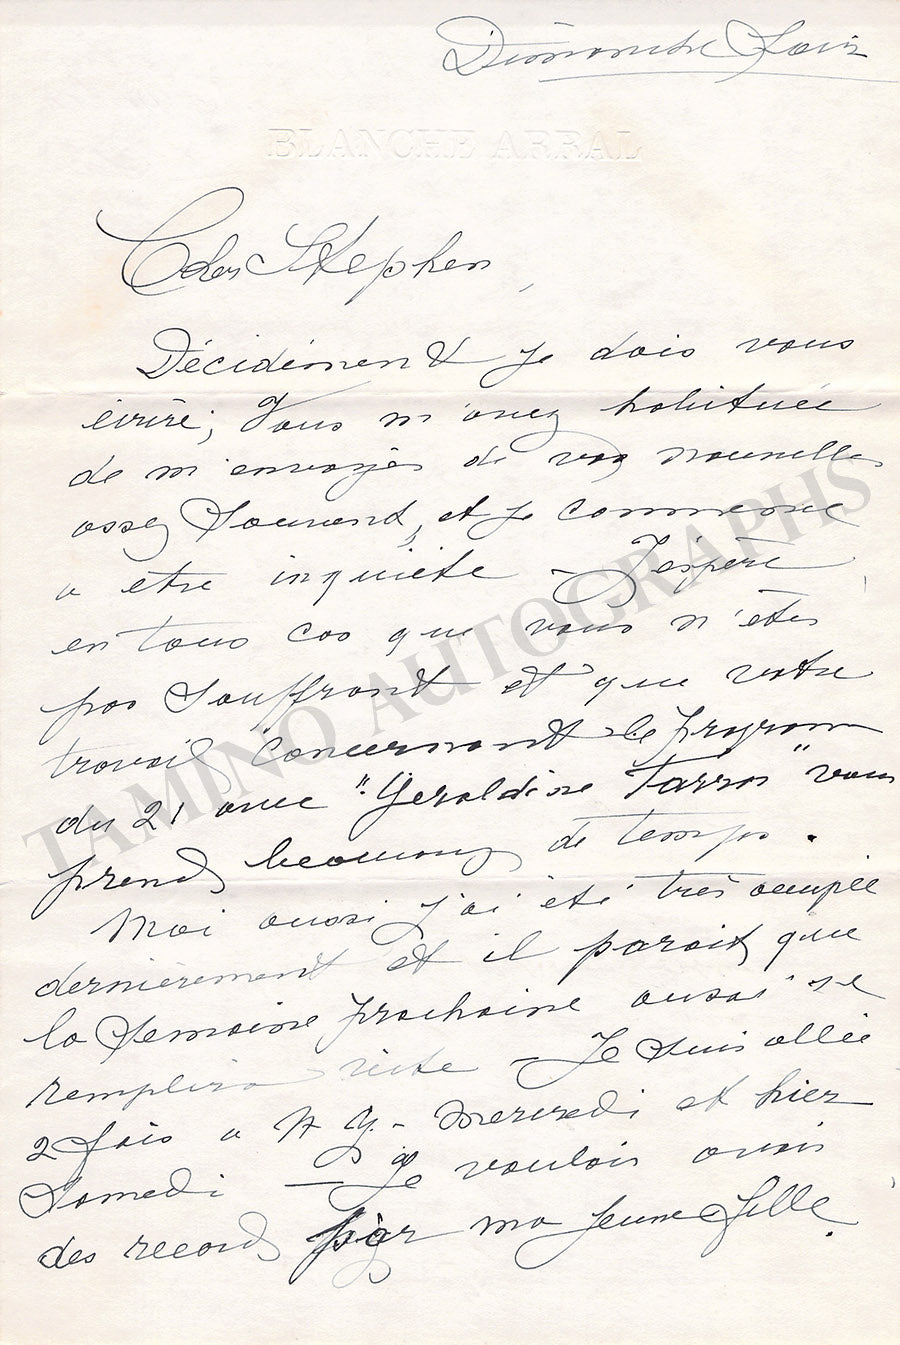 Dimanche Soir
BLANCHE ARRAL
Cher Stephen,
Décidément je dois vous
écrire; Vous m'avez habituée
de m'envoyer de vos nouvelles
assez Souvent, et je commence
a etre inquiete – J'espère
en tous cas que vous n'êtes
pas Souffrant et que votre
travail Concernant le program
du 21 avec "Geraldine Farrar" vous
prend beaucoup de temps.
Moi aussi j'ai été très occupée
dernièrement et il parait que
la Semaine prochaine aussi se
remplira vite – Je Suis allée
2 fois a N Y – Mercredi et hier
Samedi – Je voulais avoir
des records par ma jeune fille.
TAMINO AUTOGRAPHS